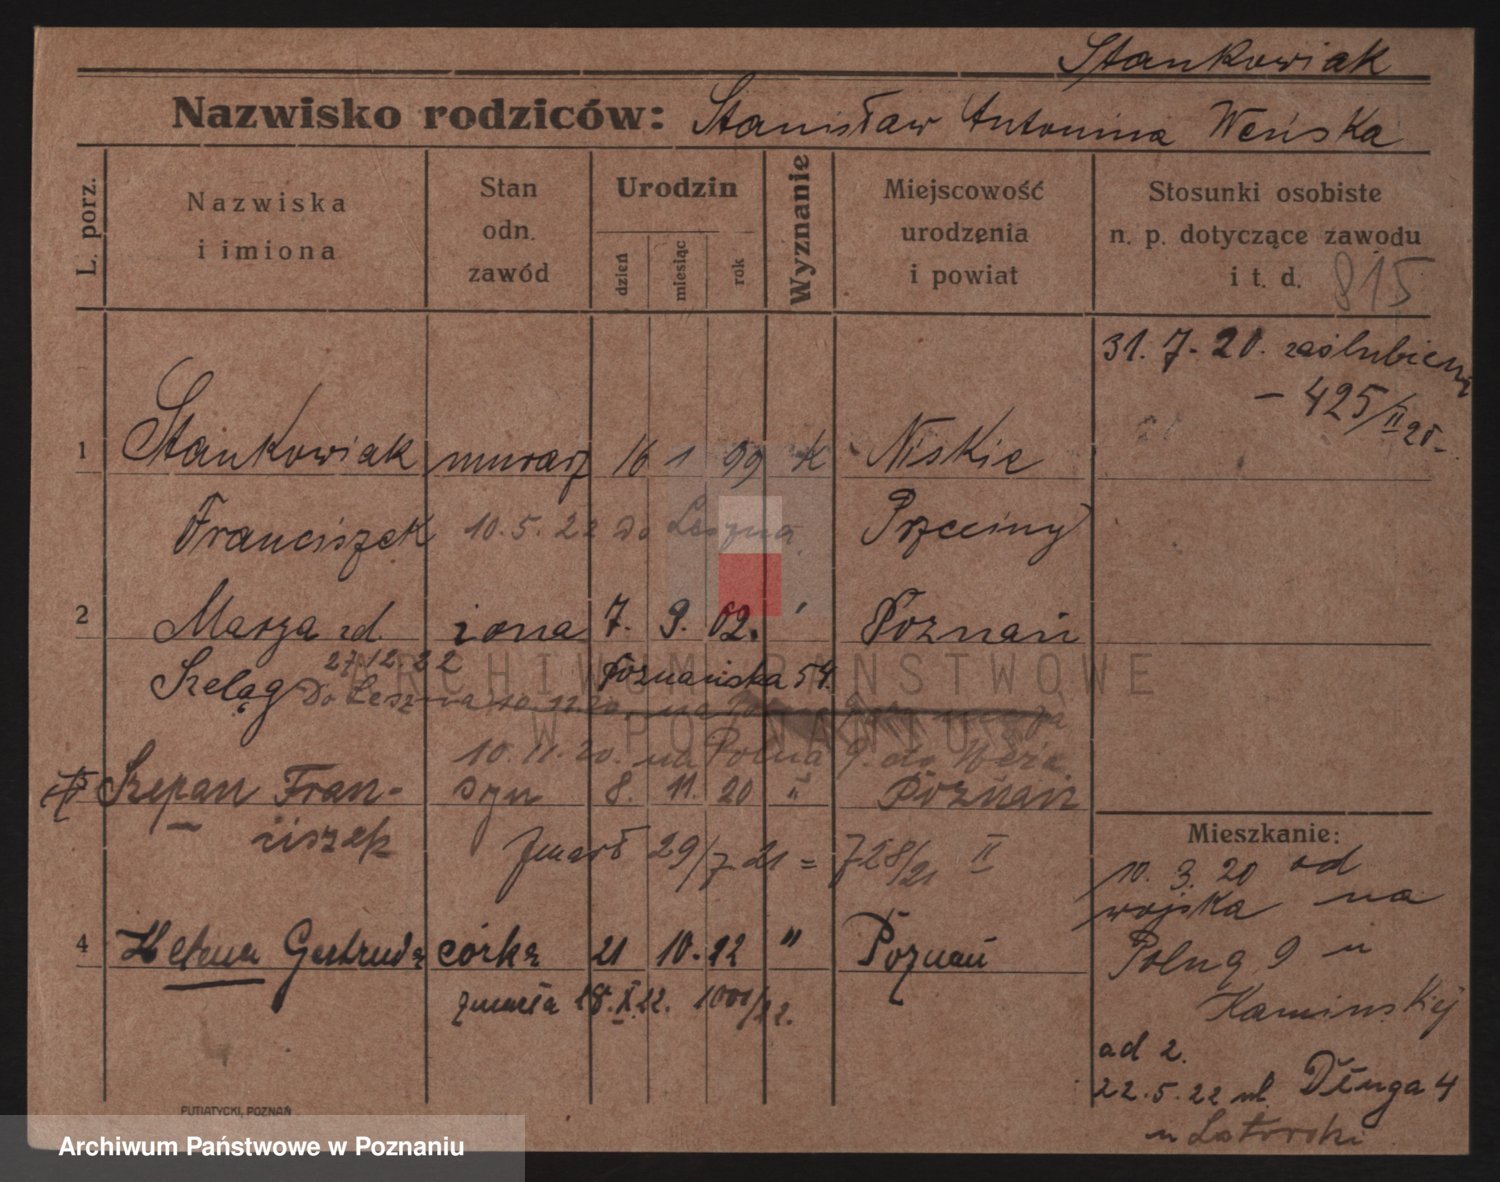 Stankowiak
Nazwisko rodziców: Stanisław Antonina Weńska
L. porz.
Nazwiska i imiona
Stan odn. zawód
Urodzin
dzień
miesiąc
rok
Wyznanie
Miejscowość urodzenia i powiat
Stosunki osobiste n. p. dotyczące zawodu i t. d.
815
31. 7. 20. zaślubieni
- 425/II 20-
1 Stankowiak murarz 16 1 99 k Niskie
Franciszek 10. 5. 22 do Leszna. Przeciny
2 Marya zd. żona 7. 9. 02. " Poznań
27/12 22 Poznańska 54.
Szeląg do Leszna
10. 11. 20. na Polna 9. do
Szczepan Fran- syn 8. 11. 20 " Poznań
ciszek
zmarł 29/7 21 = 728/21 II
4 Helena Gertruda córka 21 10. 22 " Poznań
zmarła 28. X. 22. 1001/22.
Mieszkanie:
10. 3. 20 od
wojska na
Polną 9 u
Kaminskiej
ad 2.
22. 5. 22 ul. Długa 4
u
PUTIATYCKI, POZNAŃ
ARCHIWUM PAŃSTWOWE
W POZNANIU
Archiwum Państwowe w Poznaniu